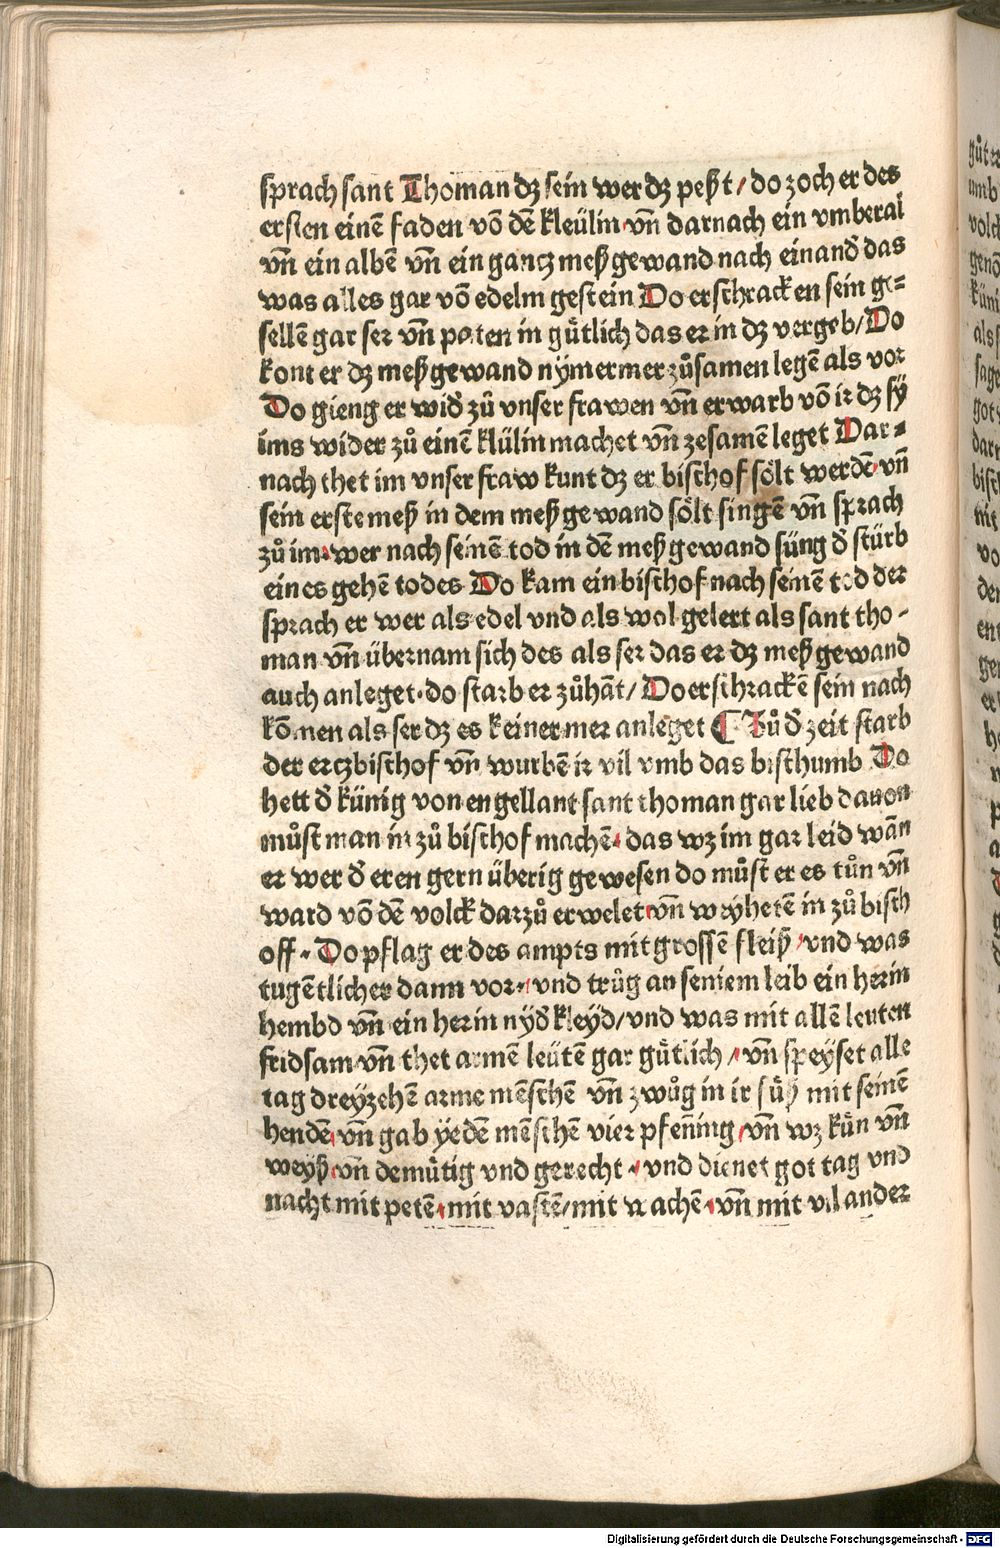 sprach sant Thoman dʒ sein wer dʒ peßt / do zoch er des
ersten einē faden vō dē kleülin · vn̄ darnach ein vmberal
vn̄ ein albē vn̄ ein gancz meßgewand nach einand̄ das
was alles gar vō edelm gestein Do erschracken sein ge⸗
sellē gar ser vn̄ paten in gütlich das er in dʒ vergeb / Do
kont er dʒ meßgewand nymermer zůsamen legē als vor
Do gieng er wid̄ zů vnser frawen vn̄ erwarb vō ir dʒ sÿ
ims wider zů einē klülin machet vn̄ zesamē leget Dar⸗
nach thet im vnser fraw kunt dʒ er bischof sölt werdē · vn̄
sein erste meß in dem meßgewand sölt singē vn̄ sprach
zů im · wer nach seinē tod in dē meßgewand süng d̄ stürb
eines gehē todes Do kam ein bischof nach seinē tod der
sprach er wer als edel vnd als wol gelert als sant tho -
man vn̄ übernam sich des als ser das er dʒ meßgewand
auch anleget · do starb er zůhāt / Do erschrackē sein nach
kōmen als ser dʒ es keiner mer anleget ¶ Zů d̄ zeit starb
der erczbischof vn̄ wurbē ir vil vmb das bisthumb Do
hett d̄ künig von engellant sant thoman gar lieb dauon
můst man in zů bischof machē · das wʒ im gar leid wān
er wer d̄ eren gern überig gewesen do můst er es tůn vn̄
ward vō dē volck darzů erwelet · vn̄ weyhetē in zů bisch
off · Do pflag er des ampts mit grossē fleiß / vnd was
tugētlicher dann vor · / vnd trůg an seniem leib ein herin
hembd vn̄ ein herin nyd̄ kleyd / vnd was mit allē leuten
fridsam vn̄ thet armē leütē gar gütlich / vn̄ speyset alle
tag dreyzehē arme mēschē vn̄ zwůg in ir füß mit seinē
hendē · vn̄ gab yedē mēschē vier pfen̄ing / vn̄ wʒ kün vn̄
weyß · vn̄ demütig vnd gerecht · / vnd dienet got tag vnd
nacht mit petē · mit vastē / mit wachē · vn̄ mit vil ander
Digitalisierung gefördert durch die Deutsche Forschungsgemeinschaft - DFG